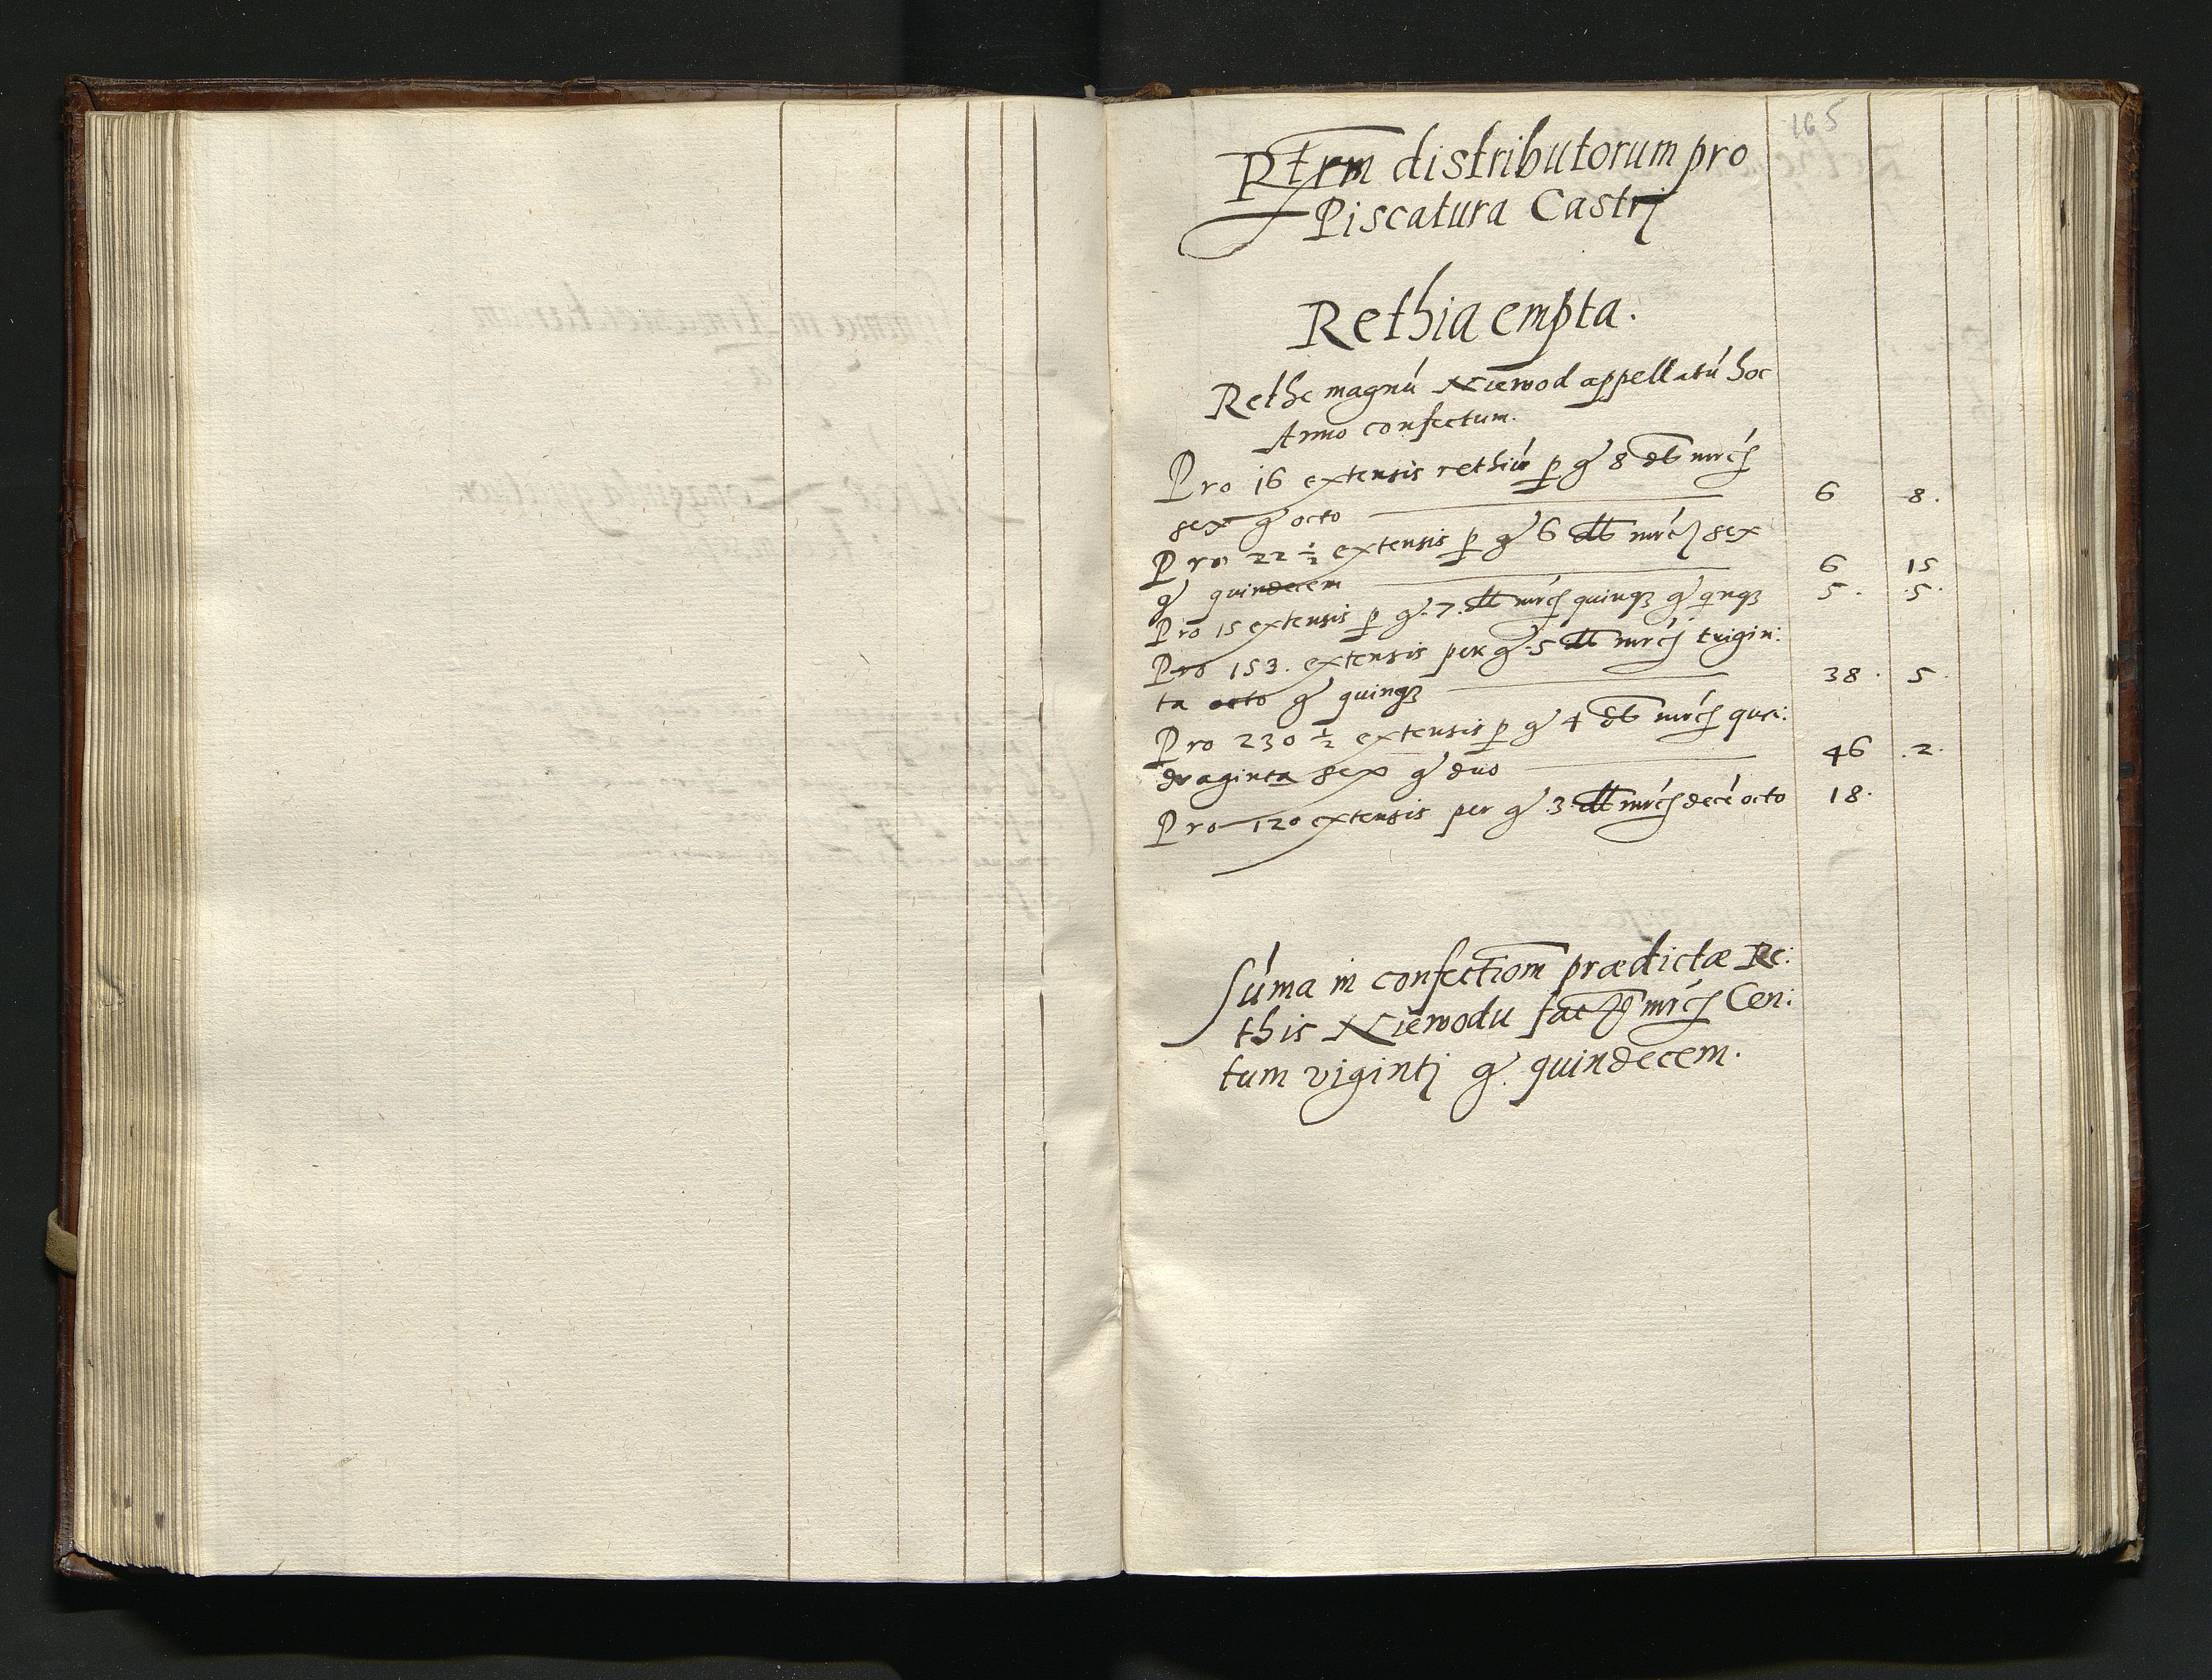 165
Rtrm distributorum pro
Piscatura Castrj
Rethia empta.
Rethe magnú Niewod appellatú hoc
Anno confectum.
Pro 16 extensis rethiú p g 8 dt mrcś
sex g octo 6 8.
Pro 22 ½ extensis p g 6 dt mrcś sex
g quindecem 6 15
Pro 15 extensis p g. 7. dt mrcś quinqȝ g qnqȝ 5. .5.
Pro 153. extensis per g. 5 dt mrcś trigin:
ta octo g quinqȝ 38. 5.
Pro 230 ½ extensis p g 4 dt mrcś qua:
draginta sex g duo 46 .2.
Pro 120 extensis per g 3 dt mrcś decé octo 18.
Súma in confectiom prædictæ Re:
this Niewodu mrcś Cen:
tum vigintj g. quindecem.